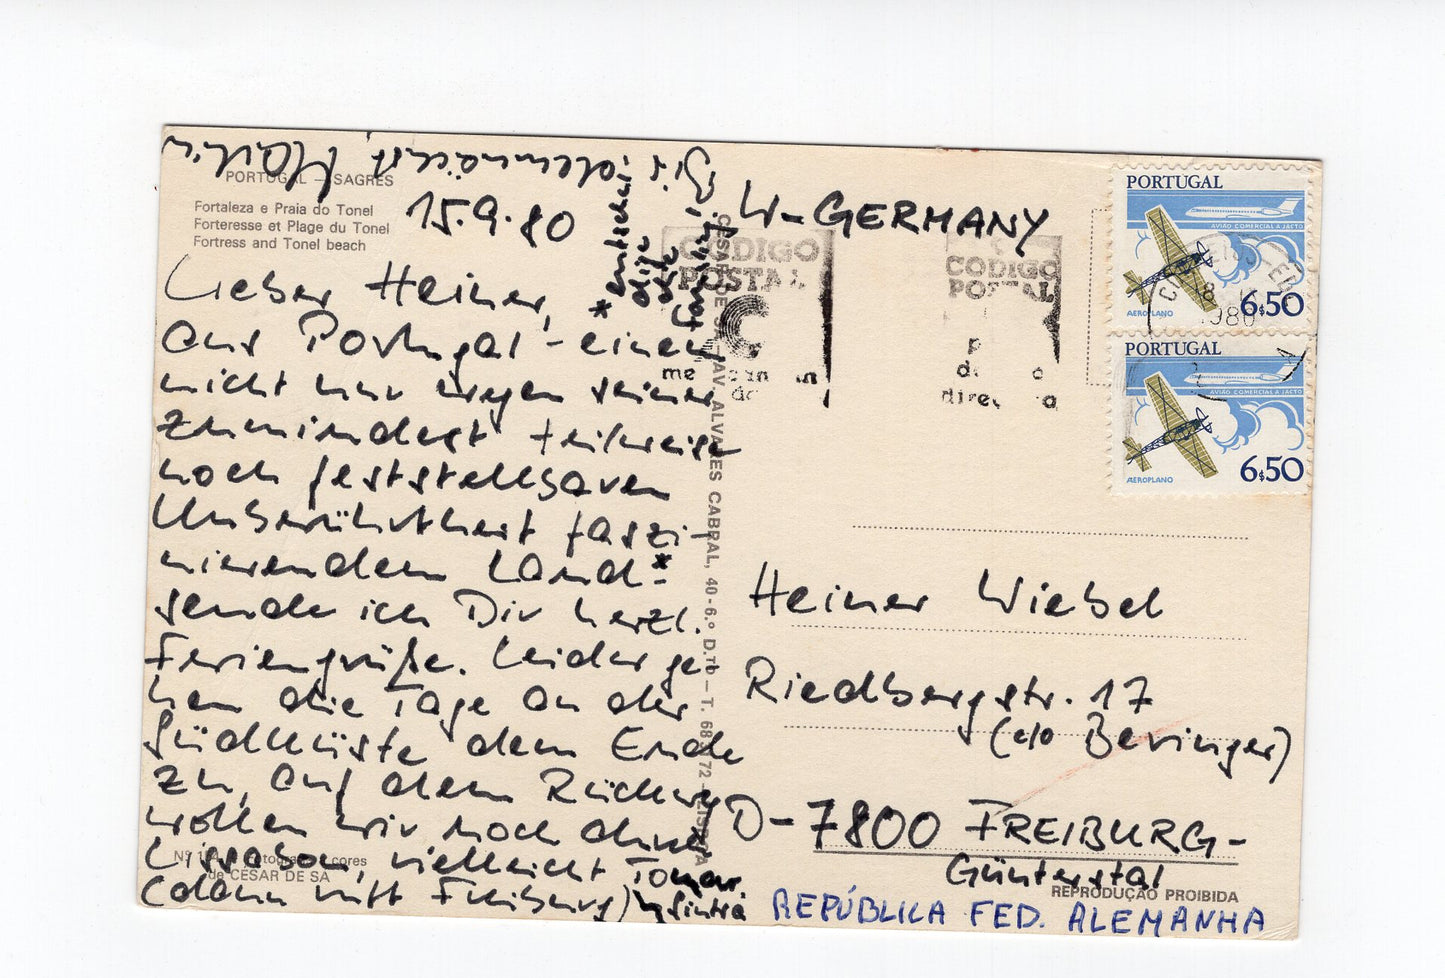 PORTUGAL — SAGRES
Fortaleza e Praia do Tonel
Forteresse et Plage du Tonel
Fortress and Tonel beach
15.9.80
Lieber Heiner,
aus Portugal - einem
nicht nur wegen seiner
zumindest teilweise
noch feststellbaren
Unberührtheit faszi-
nierendem Land* -
sende ich Dir herzl.
Feriengrüße. Leider ge-
hen die Tage an der
Südküste dem Ende
zu, auf dem Rückweg
wollen wir noch durch
Lissabon, vielleicht Tomar,
(dann ruft Freiburg) Sintra
Bis demnächst, Martin
CÓDIGO
POSTAL
CÓDIGO
POSTAL
1980
W-GERMANY
PORTUGAL
AVIÃO COMERCIAL A JACTO
AEROPLANO
6$50
PORTUGAL
AVIÃO COMERCIAL A JACTO
AEROPLANO
6$50
Heiner Wiebel
Riedbergstr. 17
(c/o Beringer)
D-7800 FREIBURG-
Günterstal
REPÚBLICA FED. ALEMANHA
REPRODUÇÃO PROIBIDA
CÉSAR DE SÁ — AV. ALVARES CABRAL, 40-6.º D.TO — T. 68 72 LISBOA
de CÉSAR DE SÁ